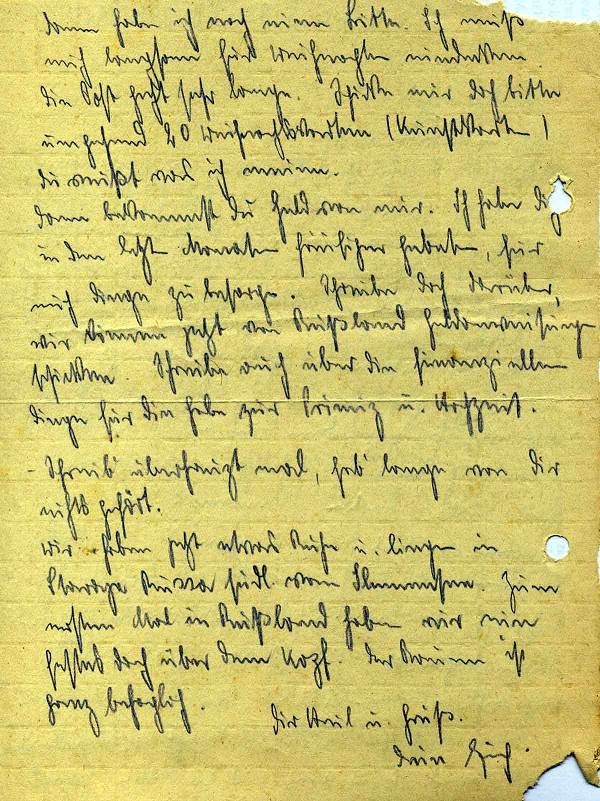 dann habe ich noch eine Bitte. Ich muß
mich langsam für Weihnachten eindecken.
die Post geht sehr lange. Schicke mir doch bitte
umgehend 20 Weihnachtskarten (Kunstkarten)
du weißt was ich meine.
dann bekommst du Geld von mir. Ich habe dich
in dem letzt Monaten häufiger gebeten, für
mich Dinge zu besorgen. Schreibe doch darüber,
wir können jetzt von Rußland Geldanweisungen
schicken. Schreibe auch über die finanziellen
Dinge für die Gabe zur Primiz u. Hochzeit.
- Schreib überhaupt mal, hab lange von dir
nichts gehört.
Wir haben jetzt etwas Ruhe u. liegen in
Staraja Russa südl. vom Ilmensee. Zum
ersten Mal in Rußland haben wir ein
festes Dach über dem Kopf. der Raum ist
ganz behaglich.
dir Heil u. Gruß.
dein